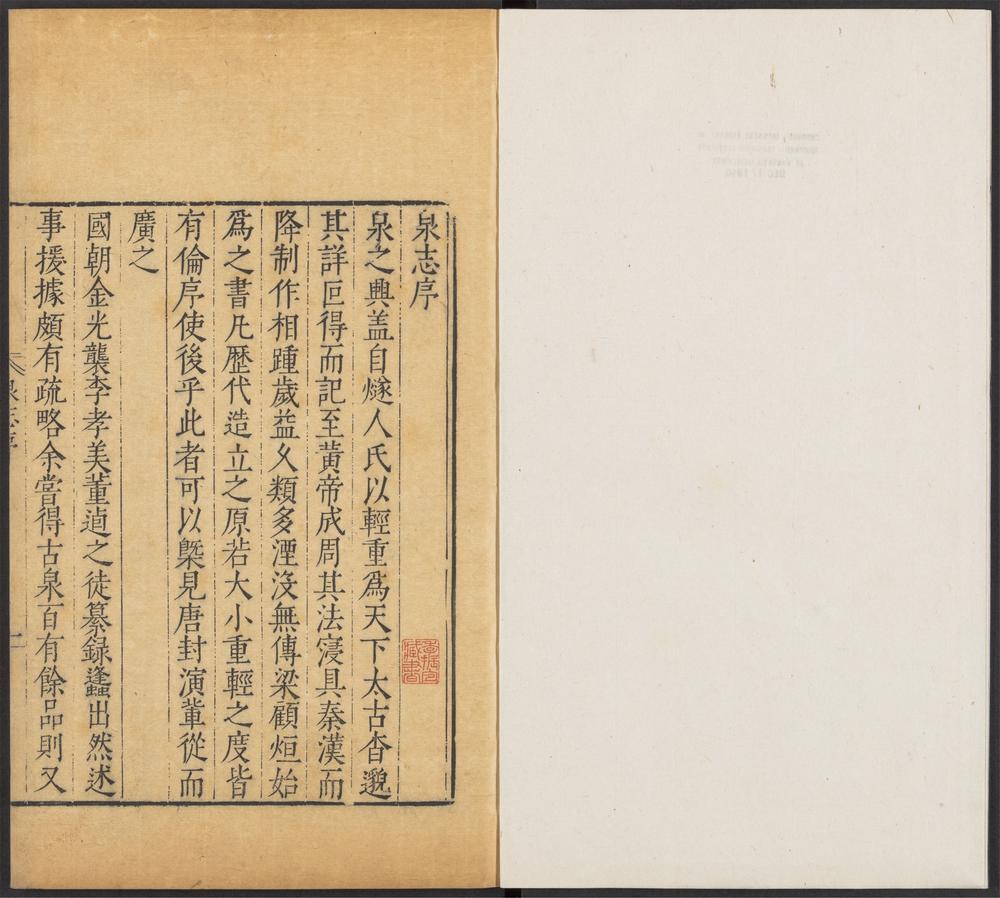 泉志序
泉之興盖自燧人氏以輕重爲天下太古杳邈
其詳叵得而記至黃帝成周其法寖具秦漢而
降制作相踵歲益久類多湮沒無傳梁顧烜始
爲之書凡歷代造立之原若大小重輕之度皆
有倫序使後乎此者可以槩見唐封演軰從而
廣之
國朝金光襲李孝美董逌之徒纂録蠭出然述
事援據頗有疏略余嘗得古泉百有餘品則又
泉志序
一
DEC 1 1950